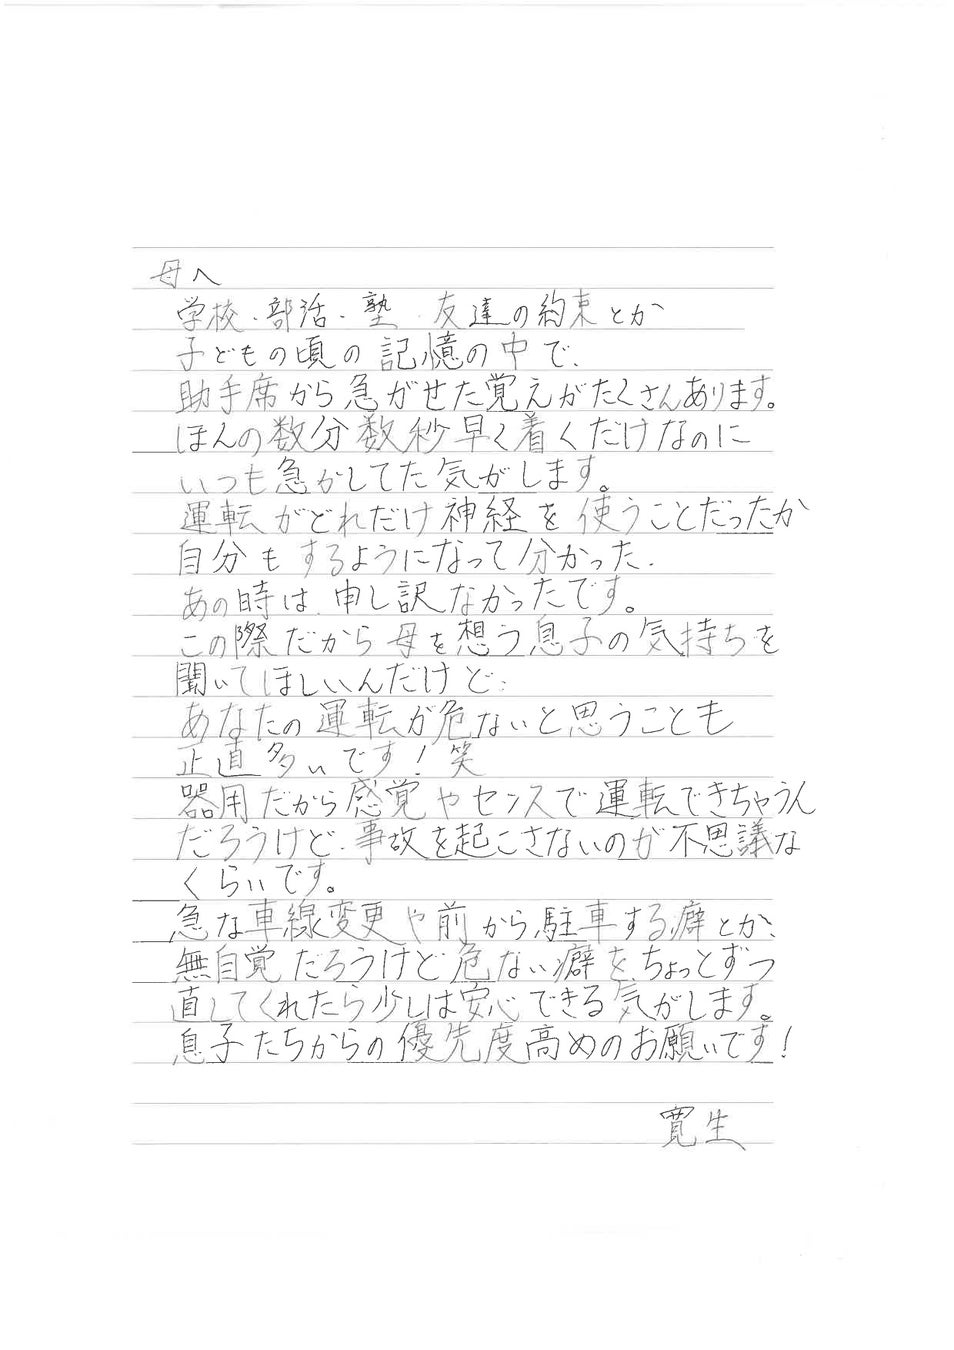 母へ
学校・部活・塾・友達の約束とか
子どもの頃の記憶の中で、
助手席から急がせた覚えがたくさんあります。
ほんの数分数秒早く着くだけなのに
いつも急かしてた気がします。
運転がどれだけ神経を使うことだったか
自分もするようになって分かった、
あの時は、申し訳なかったです。
この際だから母を想う息子の気持ちを
聞いてほしいんだけど、
あなたの運転が危ないと思うことも
正直多いです！笑
器用だから感覚やセンスで運転できちゃうん
だろうけど、事故を起こさないのが不思議な
くらいです。
急な車線変更や前から駐車する癖とか、
無自覚だろうけど危ない癖を、ちょっとずつ
直してくれたら少しは安心できる気がします。
息子たちからの優先度高めのお願いです！
寛生